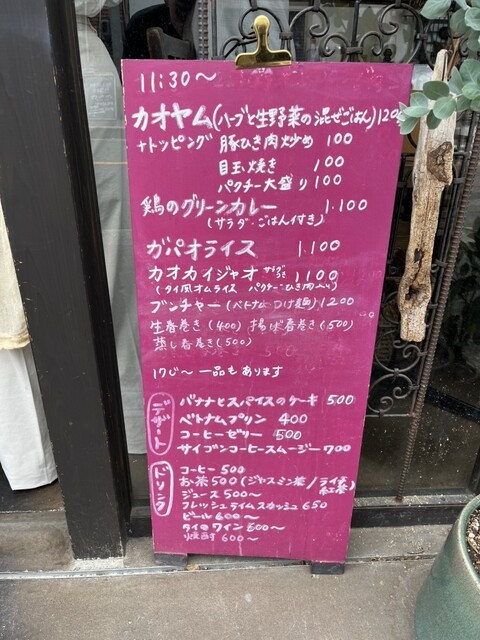 11:30〜
カオヤム(ハーブと生野菜の混ぜごはん)120
+トッピング 豚ひき肉炒め 100
目玉焼き 100
パクチー大盛り 100
鶏のグリーンカレー 1.100
(サラダ・ごはん付き)
ガパオライス 1.100
カオカイジャオ サラダつき 1100
(タイ風オムライス パクチー・ひき肉入り)
ブンチャー(ベトナムつけ麺)1200
生春巻き(400) 揚げ春巻き(500)
蒸し春巻き(500)
17じ〜 一品もあります
デザート
バナナとスパイスのケーキ 500
ベトナムプリン 400
コーヒーゼリー 500
サイゴンコーヒースムージー700
ドリンク
コーヒー 500
お茶500(ジャスミン茶/ライチ紅茶)
ジュース 500〜
フレッシュライムスカッシュ 650
ビール 600〜
タイのワイン 600〜
焼酎 600〜